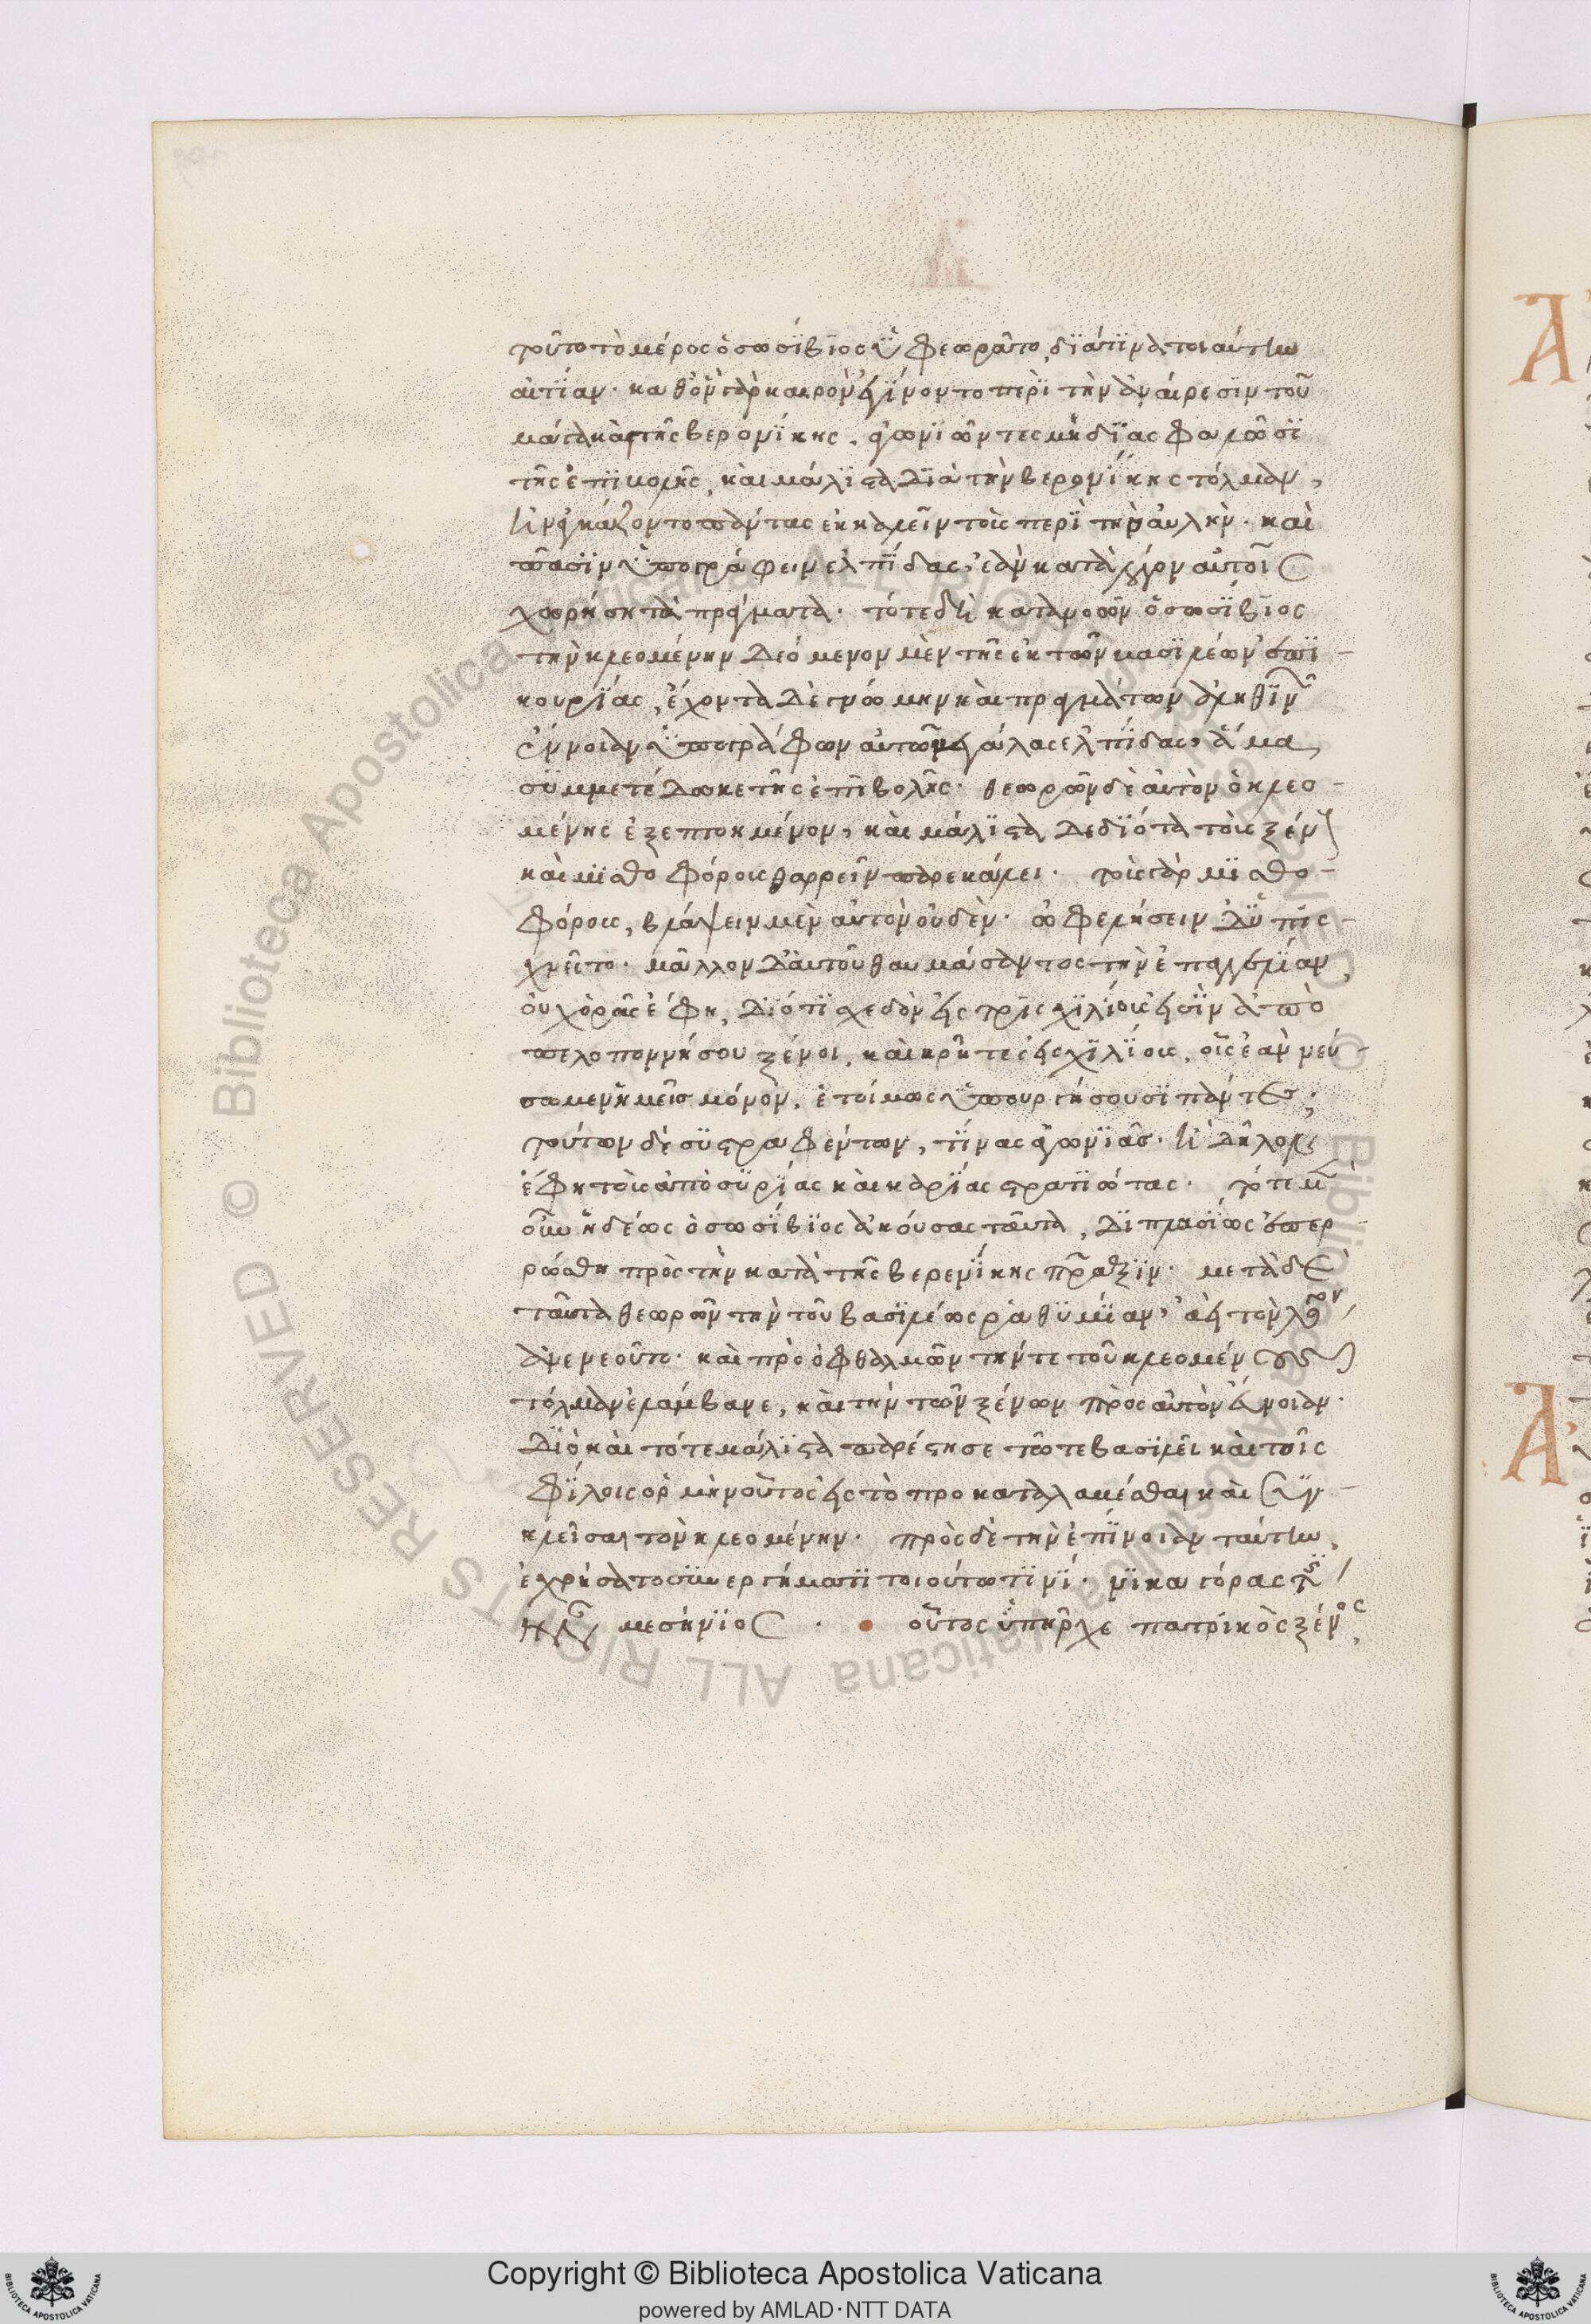 τοῦτο τὸ μέρος ὁ σωσίβιος ὑφεωρᾶτο, διά τινα τοιαύτην
αἰτίαν· καθ' ὃν γὰρ καιρὸν ἐγίνοντο περὶ τὴν ἀναίρεσιν τοῦ
μάγα καὶ τῆς βερονίκης. ἀγωνιῶντες μὴ διασφαλῶσι
τῆς ἐπιβολῆς, καὶ μάλιστα διὰ τὴν βερονίκης τόλμαν,
ἠναγκάζοντο πάντας ἐκκαλεῖν τοῖς περὶ τὴν αὐλὴν· καὶ
πᾶσιν ὑπογράφειν ἐλπίδας, ἐὰν κατὰ λόγον αὐτοῖς
χωρήση τὰ πράγματα· τότε δὴ κατανοῶν ὁ σωσίβιος
τὴν κλεομένην δεόμενον μὲν τῆς ἐκ τῶν βασιλέων ἐπι-
κουρίας, ἔχοντα δὲ γνώμην καὶ πραγμάτων ἀληθινῶν
ἔννοιαν ὑπογράφων αὐτῶ μεγάλας ἐλπίδας, ἅμα
συμμετέδωκε τῆς ἐπιβολῆς· θεωρῶν δὲ αὐτὸν ὁ κλεο-
μένης ἐξεπτοημένον, καὶ μάλιστα δεδιότα τοὺς ξένους
καὶ μισθοφόρους θαρρεῖν παρεκάλει· τοὺς γὰρ μισθο-
φόρους, βλάψειν μὲν αὐτὸν οὐδὲν· ὠφελήσειν δ' ὑπισ-
χνεῖτο· μᾶλλον δ' αὐτοῦ θαυμάσαντος τὴν ἐπαγγελίαν,
οὐχ ὁρᾶς ἔφη, διότι σχεδὸν εἰς τρισχιλίους εἰσὶν ἀπὸ
πελοποννήσου ξένοι, καὶ κρῆτες εἰς χιλίους, οἷς ἐὰν νεύ-
σωμεν ἡμεῖς μόνον, ἑτοίμως ὑπουργήσουσι πάντες·
τούτων δὲ συστραφέντων, τίνας ἀγωνιᾶς· ἢ δῆλον
ἔφη τοὺς ἀπὸ συρίας καὶ καρίας στρατιώτας· τότε μὲν
οὖν ἡδέως ὁ σωσίβιος ἀκούσας ταῦτα, διπλασίως ἐπερ-
ρώσθη πρὸς τὴν κατὰ τῆς βερενίκης πρᾶξιν· μετὰ δὲ
ταῦτα θεωρῶν τὴν τοῦ βασιλέως ῥαθυμίαν, ἀεὶ τὸν λόγον
ἀνενεοῦτο· καὶ πρὸ ὀφθαλμῶν τήν τε τοῦ κλεομένους
τόλμαν ἐλάμβανε, καὶ τὴν τῶν ξένων πρὸς αὐτὸν εὔνοιαν·
διὸ καὶ τότε μάλιστα παρέστησε τῶ τε βασιλεῖ καὶ τοῖς
φίλοις ὁρμὴν οὗτος εἰς τὸ προκαταλαβέσθαι καὶ συγ-
κλεῖσαι τὸν κλεομένην· πρὸς δὲ τὴν ἐπίνοιαν ταύτην,
ἐχρήσατο συνεργήματι τοιούτω τινί· νικαγόρας τις
ἦν μεσήνιος· οὗτος ὑπῆρχε πατρικὸς ξένος
Copyright © Biblioteca Apostolica Vaticana
powered by AMLAD·NTT DATA